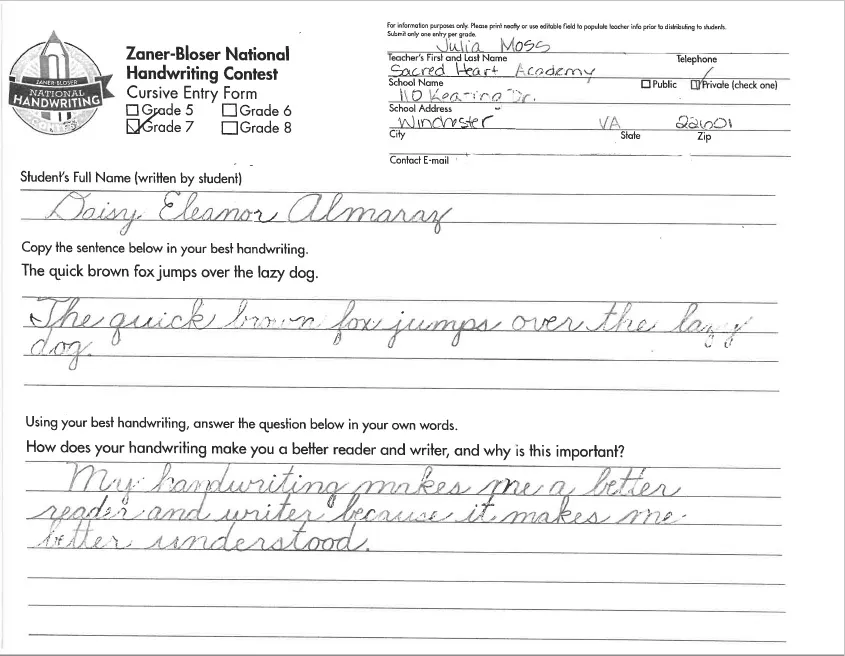 For information purposes only. Please print neatly or use editable field to populate teacher info prior to distributing to students.
Submit only one entry per grade.
Julia Moss
Teacher's First and Last Name
Telephone
Sacred Heart Academy
School Name
Public
Private (check one)
110 Keating Dr.
School Address
Winchester VA 22601
City
State
Zip
Contact E-mail
ZANER-BLOSER
NATIONAL
HANDWRITING
Zaner-Bloser National
Handwriting Contest
Cursive Entry Form
Grade 5 Grade 6
Grade 7 Grade 8
Student's Full Name (written by student)
Daisy Eleanor Almaraz
Copy the sentence below in your best handwriting.
The quick brown fox jumps over the lazy dog.
The quick brown fox jumps over the lazy
dog.
Using your best handwriting, answer the question below in your own words.
How does your handwriting make you a better reader and writer, and why is this important?
My handwriting makes me a better
reader and writer because it makes me
better understood.